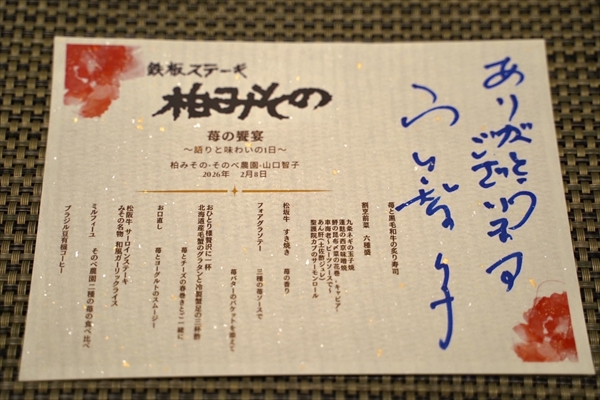 鉄板ステーキ
柏みその
苺の饗宴
～語りと味わいの1日～
柏みその-そのべ農園-山口智子
2026年 2月8日
苺と黒毛和牛の炙り寿司
割烹前菜 六種盛
九条ネギの玉子焼
蓮麩の西京味噌焼
鮃の昆布〆菜の花巻～キャビア～
車海老～ビーツソースで～
あん肝(土佐酢ジュレ)
聖護院カブのサーモンロール
松坂牛 すき焼き 苺の香り
フォアグラソテー 三種の苺ソースで
苺バターのバケットを添えて
おひとり様贅沢に一杯
北海道産毛蟹のグラタンと冷製蟹足の三杯酢
苺とチーズの春巻きとご一緒に
お口直し 苺とヨーグルトのスムージー
松阪牛サーロインステーキ
みその名物 和風ガーリックライス
ミルフィーユ そのべ農園二種の苺の食べ比べ
ブラジル豆有機コーヒー
ありがとう
ございます
山口智子